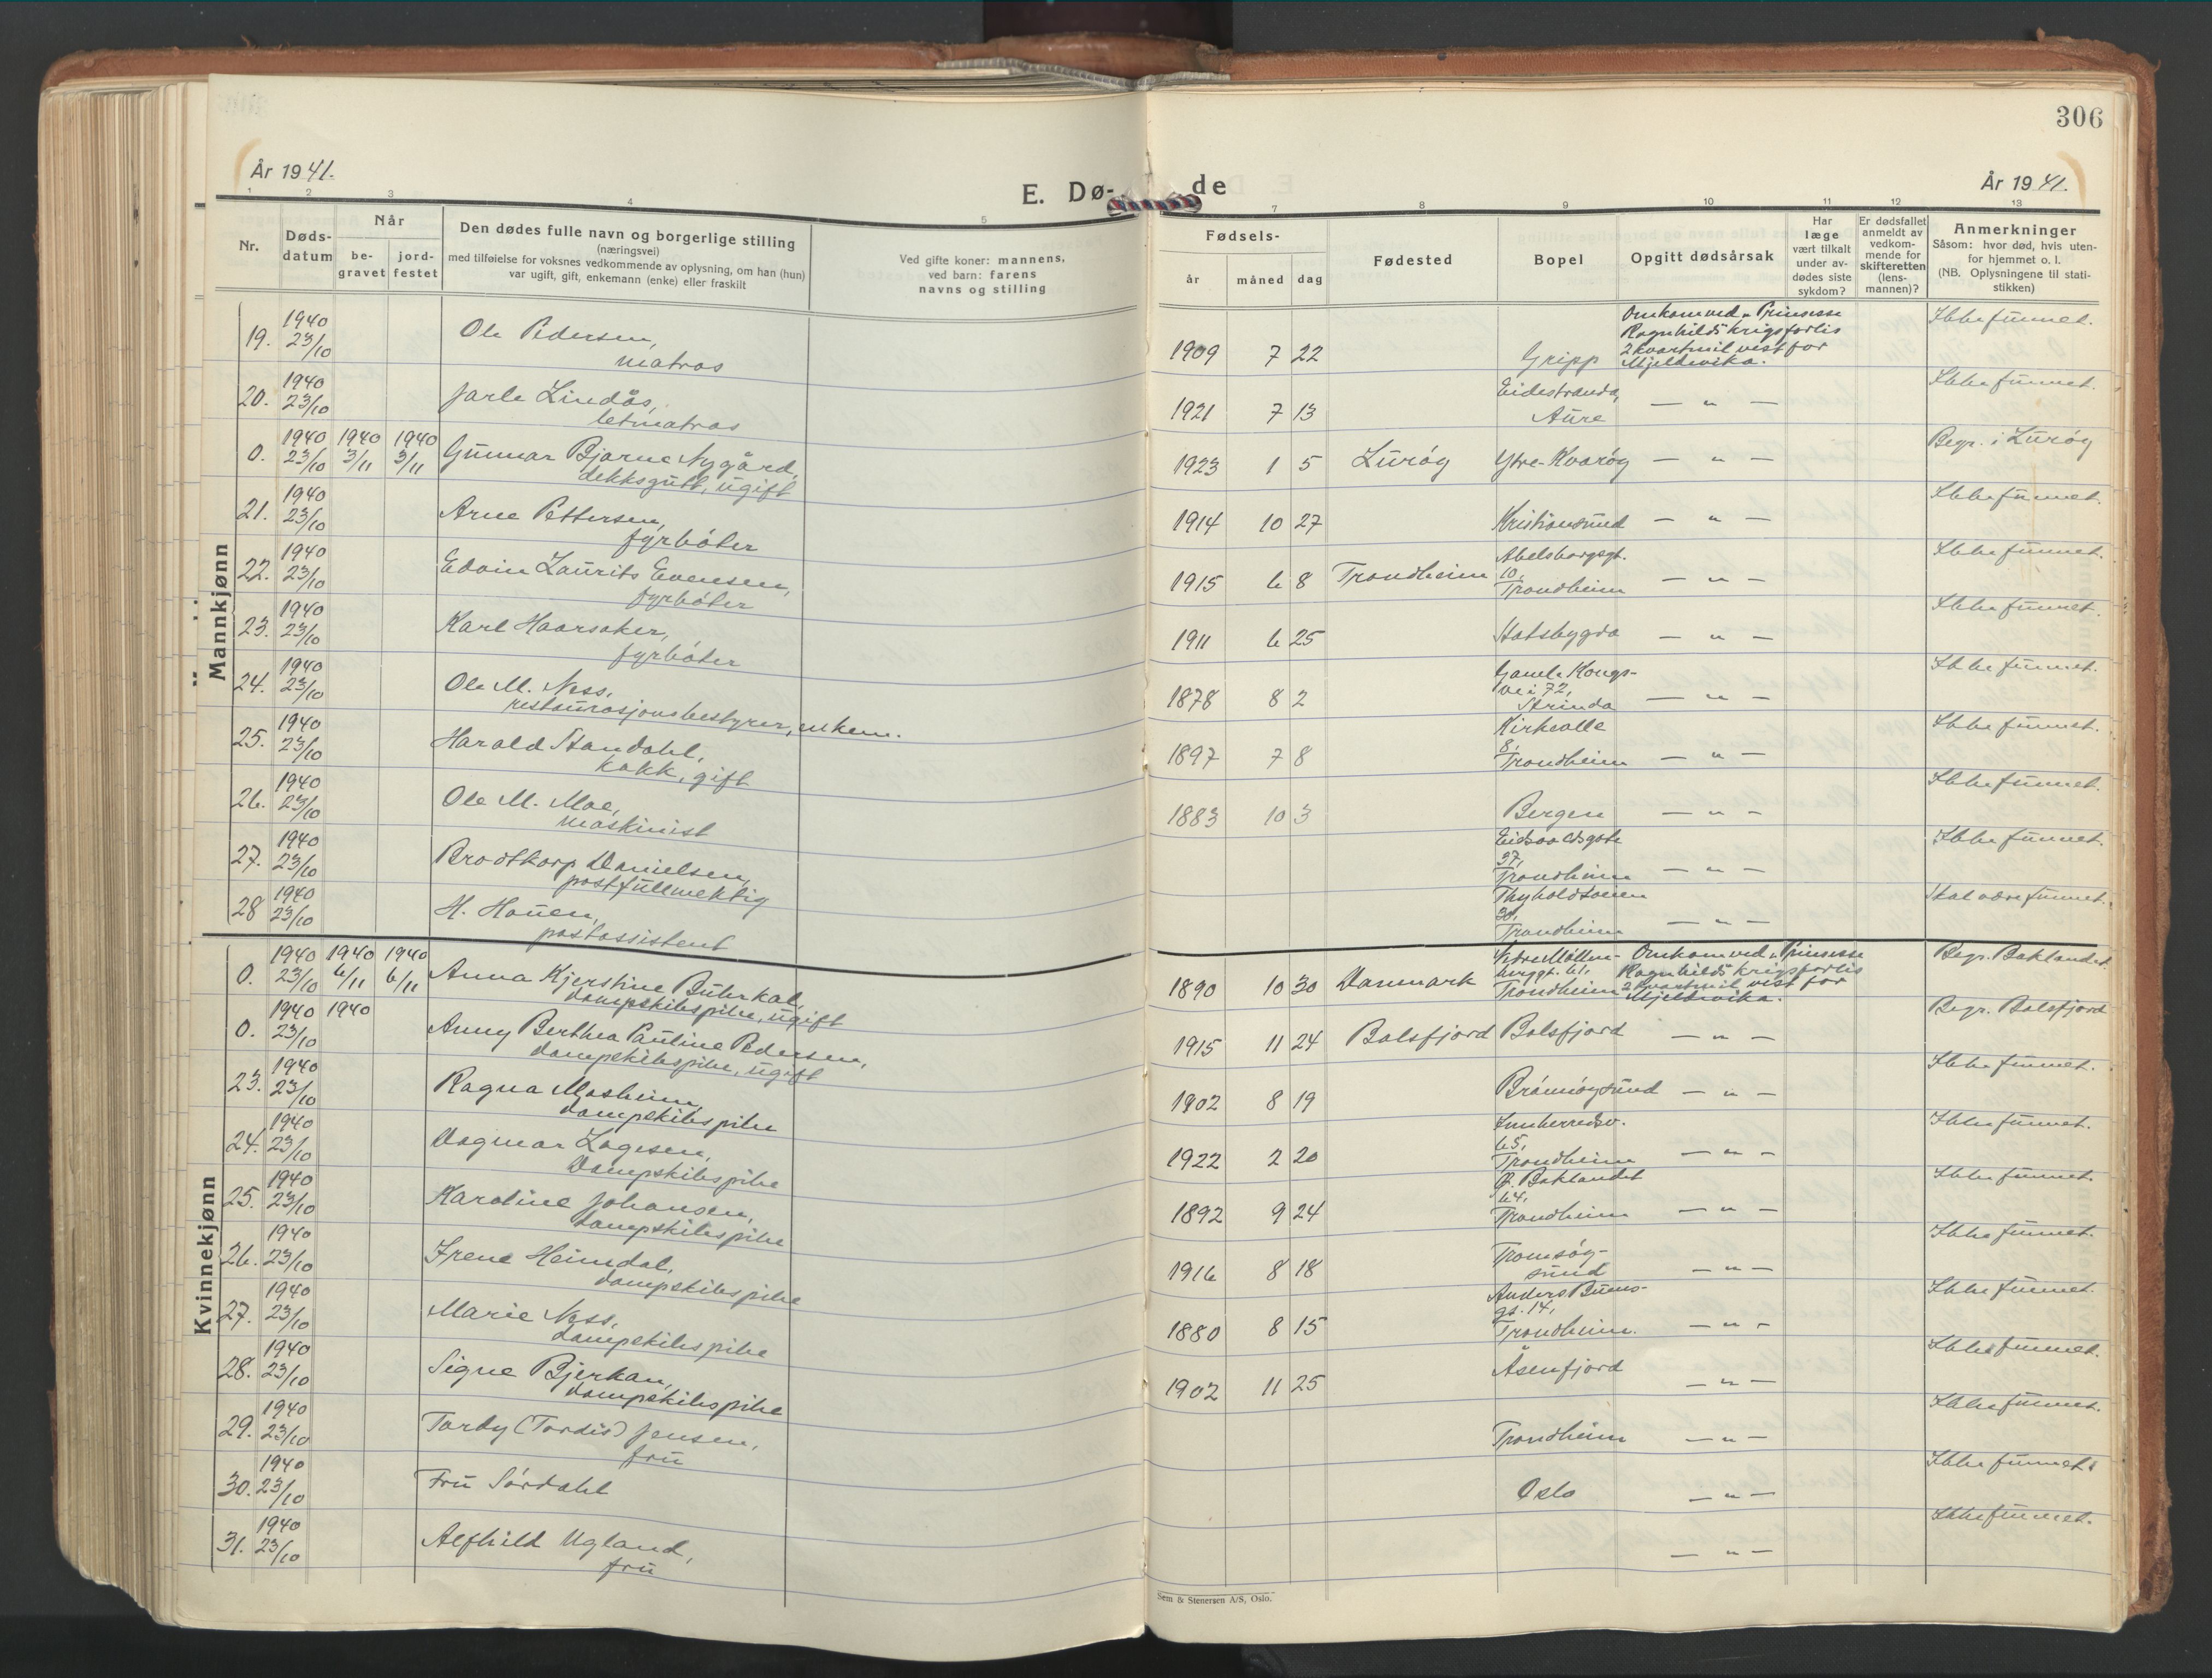 306
År 1941.
E. Dø- de
År 1941.
1 2 3 4 5 7 8 9 10 11 12 13
Nr.
Døds-
datum
Når
be-
gravet
jord-
festet
Den dødes fulle navn og borgerlige stilling
(næringsvei)
med tilføielse for voksnes vedkommende av oplysning, om han (hun)
var ugift, gift, enkemann (enke) eller fraskilt
Ved gifte koner: mannens,
ved barn: farens
navns og stilling
Fødsels-
år måned dag
Fødested
Bopel
Opgitt dødsårsak
Har
læge
vært tilkalt
under av-
dødes siste
sykdom?
Er dødsfallet
anmeldt av
vedkom-
mende for
skifteretten
(lens-
mannen)?
Anmerkninger
Såsom: hvor død, hvis uten-
for hjemmet o. l.
(NB. Oplysningene til stati-
stikken)
Mannkjønn
19. 1940 23/10 Ole Pedersen,
matros
1909 7 22 Gripp
Omkom ved "Prinsesse
Ragnhild's krigsforlis
2 kvartmil vest for
Mjeldevika.
Ikke funnet.
20. 1940 23/10 Jarle Lindås,
letmatros
1921 7 13 Eidestranda,
Aure — " — Ikke funnet.
0. 1940 23/10 1940 3/11 1940 3/11 Gunnar Bjarne Nygård,
dekksgutt, ugift
1923 1 5 Lurøy Ytre-Kvarøy — " — Begr. i Lurøy
21. 1940 23/10 Arne Pettersen,
fyrbøter
1914 10 27 Kristiansund — " — Ikke funnet.
22. 1940 23/10 Edvin Laurits Evensen,
fyrbøter
1915 6 8 Trondheim Abelsborggt.
10,
Trondheim — " — Ikke funnet.
23. 1940 23/10 Karl Haarsaker,
fyrbøter
1911 6 25 Statsbygda — " — Ikke funnet.
24. 1940 23/10 Ole M. Ness,
restaurasjonsbestyrer, enkem.
1878 8 2 Gamle Kongs-
vei 72,
Strinda — " — Ikke funnet.
25. 1940 23/10 Harald Standahl,
kokk, gift
1897 7 8 Kirkealle
8,
Trondheim — " — Ikke funnet.
26. 1940 23/10 Ole M. Moe,
maskinist
1883 10 3 Bergen — " — Ikke funnet.
27. 1940 23/10 Brodtkorp Danielsen,
postfullmektig
Eidsvoldsgate
37,
Trondheim — " — Ikke funnet.
28 1940 23/10 H. Hauen,
postassistent
Trondheim — " — Skal være funnet.
Kvinnekjønn
0. 1940 23/10 1940 6/11 1940 6/11 Anna Kjerstine Buhrkal,
dampskibspike, ugift
1890 10 30 Danmark
Trondheim
Omkom ved "Prinsesse
Ragnhild's krigsforlis
2 kvartmil vest for
Mjeldevika.
Begr. Baklandet.
0. 1940 23/10 1940 Anny Berthea Pauline Pedersen,
dampskibspike, ugift
1915 11 24 Balsfjord Balsfjord — " — Begr. Balsfjord
23. 1940 23/10 Ragna Mosheim,
dampskibspike
1902 8 19 Brønnøysund — " — Ikke funnet.
24. 1940 23/10 Dagmar Lagesen,
Dampskibspike
1922 2 20 Innherredsv.
65,
Trondheim — " — Ikke funnet.
25. 1940 23/10 Karoline Johansen,
dampskibspike
1892 9 24 Ø. Baklandet
64,
Trondheim — " — Ikke funnet.
26. 1940 23/10 Irene Heimdal,
dampskibspike
1916 8 18 Tromsøy-
sund — " — Ikke funnet.
27. 1940 23/10 Marie Ness,
dampskibspike
1880 8 15 Anders Buens-
gt. 14,
Trondheim. — " — Ikke funnet.
28. 1940 23/10 Signe Bjerkan,
dampskibspike
1902 11 25 Åsenfjord — " — Ikke funnet.
29. 1940 23/10 Tordy (Tordis) Jensen,
fru
Trondheim — " — Ikke funnet.
30. 1940 23/10 Fru Sørdahl
Oslo — " — Ikke funnet.
31. 1940 23/10 Alfhild Ugland,
fru
— " — Ikke funnet.
Sem & Stenersen A/S, Oslo.